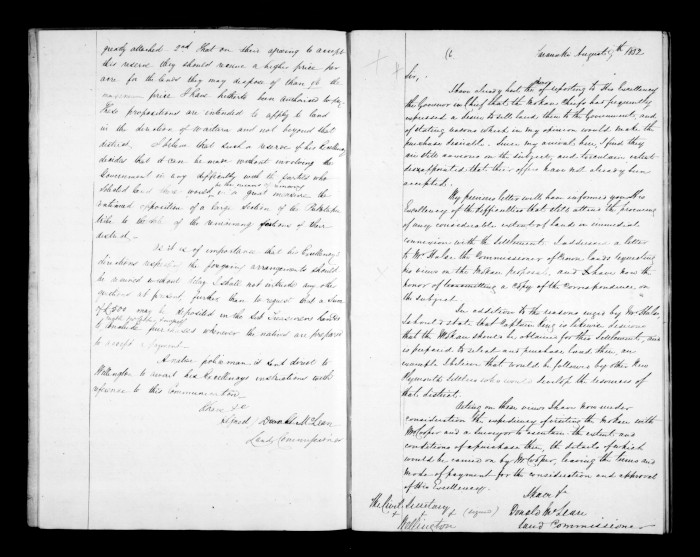 greatly attached 2nd That on their agreeing to accept
this reserve they should receive a higher price per
acre for the lands they may dispose of than the
maximum price I have hitherto been authorised to pay.
These propositions are intended to apply to land
in the direction of Waitara and not beyond that
district. I believe that such a reserve if his Excellency
decides that it can be made without involving the
Government in any difficulty with the parties who
selected land there would, in a great measure the
national opposition of a large section of the Puketapu
tribe to the sale of the remaining portions of their
district.
As it is of importance that his Excellency's
directions respecting the foregoing arrangements should
be received without delay I shall not introduce any other
questions at present, further than to request that a Sum
of £500 may be deposited in the Sub Treasurers hands
to conclude purchases whenever the natives are prepared
to accept payment.
A native policeman is sent direct to
Wellington to await his Excellencys instructions with
reference to this Communication
I have &c
Signed / Donald McLean
Land Commissioner
Taranaki August 5th 1852
Sir,
I have already had the honor of reporting to His Excellency
the Governor in Chief that the Mokau Chiefs had frequently
expressed a desire to sell lands then to the Government, and
of stating reasons which in my opinion would make the
purchase desirable. Since my arrival here, I find they
are still anxious on the subject, and to a certain extent
disappointed that their offers have not already been
accepted.
My previous letter will have informed you & His
Excellency of the difficulties that still attend the procuring
of any considerable extent of land in immediate
connexion with the Settlement. I addressed a letter
to Mr Halse, the Commissioner of Crown lands requesting
his views on the Mokau proposals, and I have now the
honor of transmitting a copy of the correspondence on
the subject.
In addition to the reasons urged by Mr Halse,
I should state that Captain King is likewise desirous
that the Mokau should be obtained for this Settlement, and
is prepared to select and purchase land there, an
example I believe that would be followed by other New
Plymouth Settlers who would develop the resources of
that district.
Acting on these views I have now under
consideration the expediency of visiting the Mokau with
Mr Cooper and a Surveyor to ascertain the extent and
conditions of a purchase there, the details of which
would be carried on by Mr Cooper, leaving the terms and
mode of payment for the consideration and approval
of His Excellency.
I have &
The Civil Secretary (signed) Donald McLean
Wellington Land Commissioner